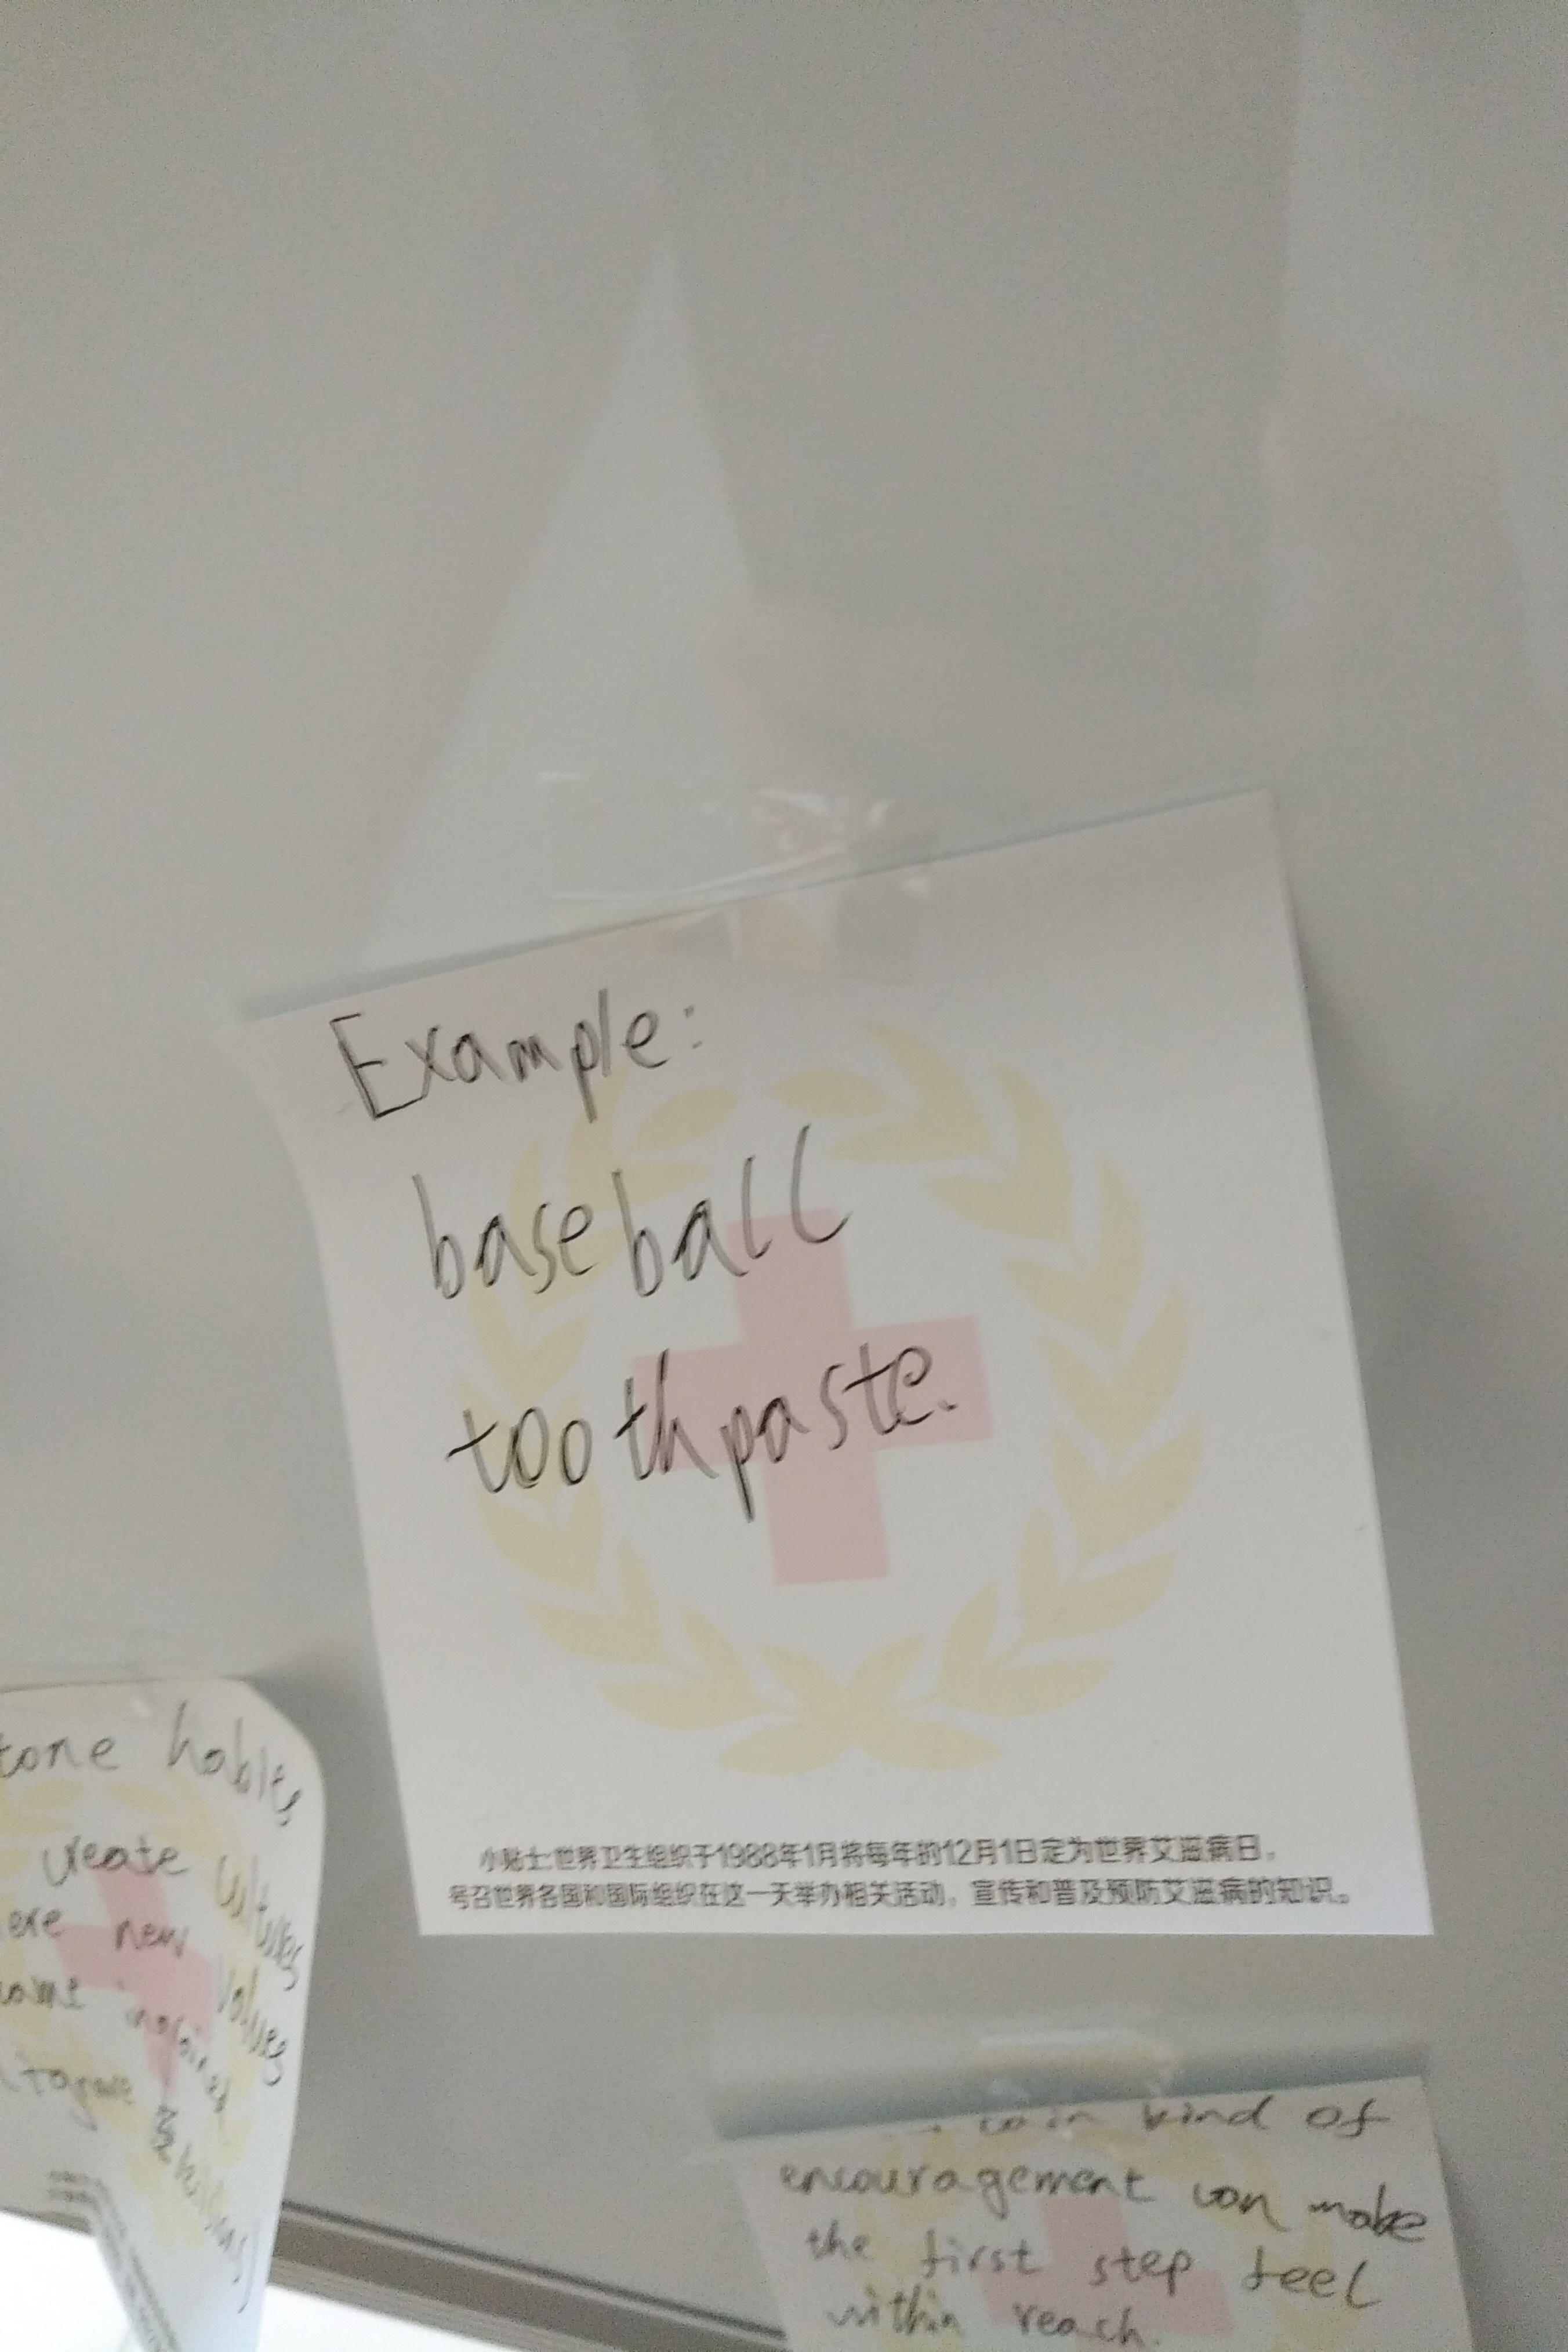 Example:
baseball
toothpaste.
小贴士:世界卫生组织于1988年1月将每年的12月1日定为世界艾滋病日,
号召世界各国和国际组织在这一天举办相关活动，宣传和普及预防艾滋病的知识。
tone habits
create cultures
ere new values
kind of
encouragement can make
the first step feel
within reach.